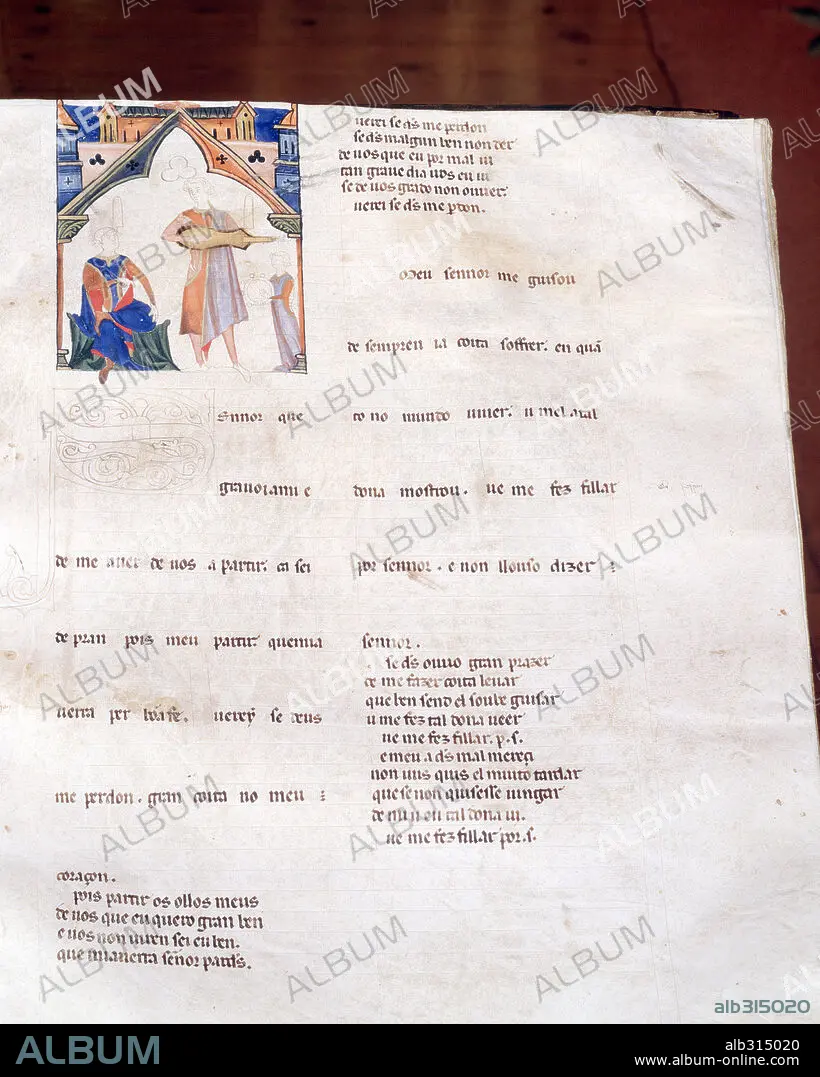 Sennor que
graue oi a mi e
de me auer de uos a partir. ca sei
de pran pois meu partir. que mia
uerra per boa fe. uerey se deus
me perdon. gran coita no meu :
coraçon.
pois partir os ollos meus
de uos que eu quero gran ben
e uos non uiren sei eu ben.
que mauerra sennor
uerei se ds me perdon
se ds malgun ben non der
de uos que eu por mal ui
tan graue dia uos eu ui
se de uos grado non ouuer.
uerei se ds me pdon.
Meu sennor me guisou
de sempreu ia coita soffrer. en quã
to no mundo uiuer. u mel atal
dona mostrou. que me fez fillar
por sennor. e non llouso dizer :
sennor.
se ds ouuo gran prazer
de me fazer coita leuar
que ben send el soube guisar
u me fez tal dona ueer
que me fez fillar. p. s.
e meu a ds mal mereci
non uus quis el muito tardar
que se non quisesse uingar
de mi u ou tal dona ui.
que me fez fillar por. s.
ALBUM
alb315020
ALBUM
alb315020
www.album-online.com